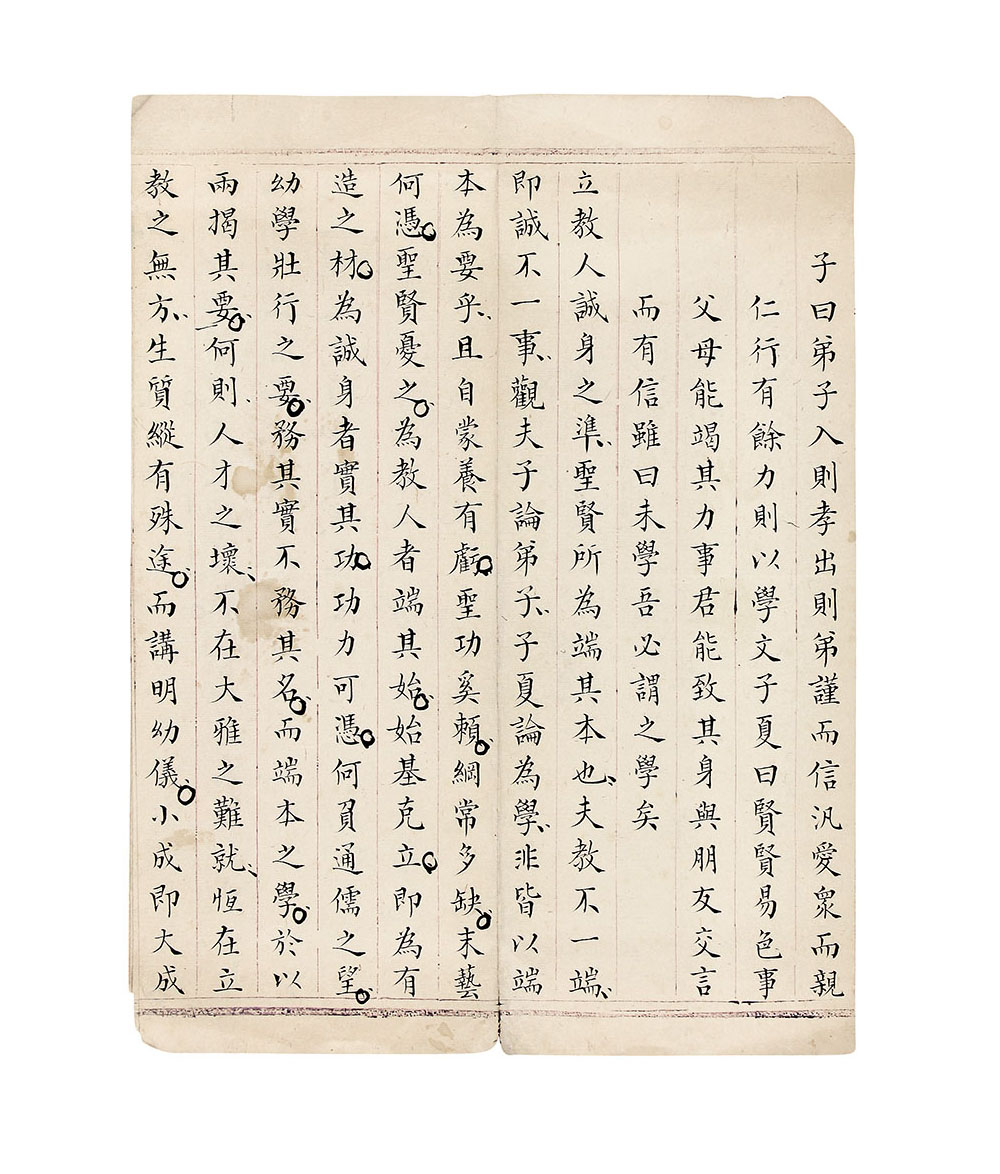 子曰弟子入則孝出則弟謹而信汎愛眾而親
仁行有餘力則以學文子夏曰賢賢易色事
父母能竭其力事君能致其身與朋友交言
而有信雖曰未學吾必謂之學矣
立教人誠身之準聖賢所為端其本也夫教不一端
即誠不一事觀夫子論弟子子夏論為學非皆以端
本為要乎且自蒙養有虧聖功奚賴綱常多缺末藝
何憑聖賢憂之為教人者端其始始基克立即為有
造之材為誠身者實其功功力可憑何負通儒之望
幼學壯行之要務其實不務其名而端本之學於以
兩揭其要何則人才之壞不在大雅之難就恒在立
教之無方生質縱有殊途而講明幼儀小成即大成